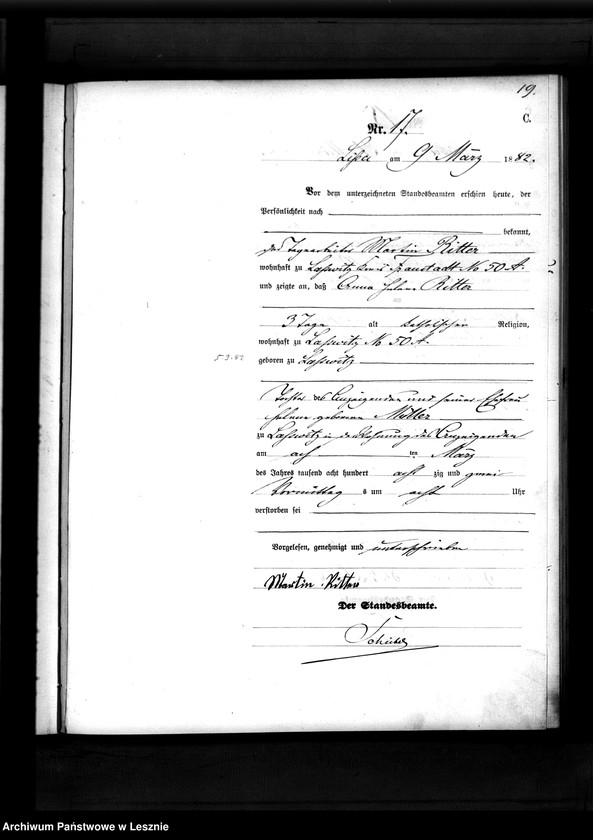 19.
C.
Nr. 17.
Lissa am 9 März 1882.
Vor dem unterzeichneten Standesbeamten erschien heute, der
Persönlichkeit nach
bekannt,
der Tagearbeiter Martin Ritter
wohnhaft zu Lasswitz Kreis Fraustadt No 50 A.
und zeigte an, daß Anna Helene Ritter
3 Tage alt katholischer Religion,
wohnhaft zu Lasswitz No 50 A.
5 3.82
geboren zu Lasswitz
Tochter des Anzeigenden und seiner Ehefrau
Helene geborene Müller
zu Lasswitz in der Wohnung des Anzeigenden
am acht ten März
des Jahres tausend acht hundert acht zig und zwei
Vormittag s um acht Uhr
verstorben sei
Vorgelesen, genehmigt und unterschrieben
Martin Ritter
Der Standesbeamte.
Archiwum Państwowe w Lesznie